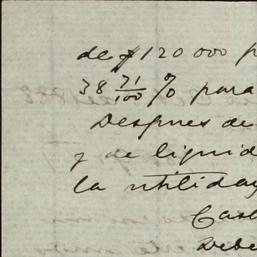 de $120 000 p
38 71/100 % para
Despues de
y de liquid
la utilidad
Cast
Debe